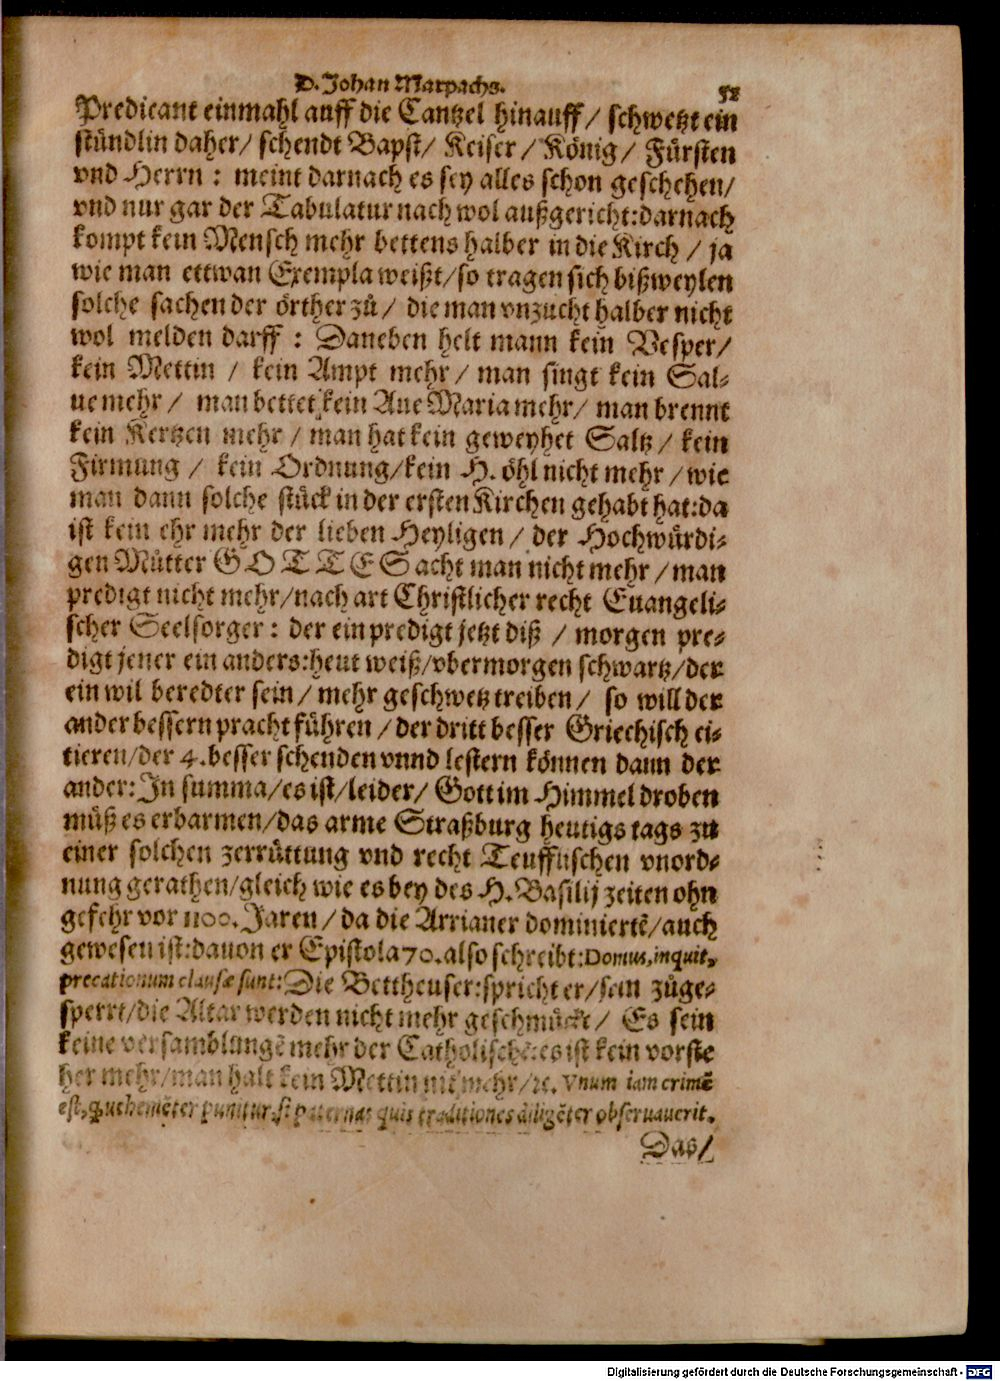 D. Johan Marpachs. 52
Predicant einmahl auff die Cantzel hinauff / schwetzt ein
stündlin daher / schendt Bapst / Keiser / König / Fürsten
vnd Herrn : meint darnach es sey alles schon geschehen /
vnd nur gar der Tabulatur nach wol außgericht: darnach
kompt kein Mensch mehr bettens halber in die Kirch / ja
wie man ettwan Exempla weißt / so tragen sich bißweylen
solche sachen der örther zů / die man vnzucht halber nicht
wol melden darff : Daneben helt mann kein Vesper /
kein Mettin / kein Ampt mehr / man singt kein Sal-
ue mehr / man bettet kein Aue Maria mehr / man brennt
kein Kertzen mehr / man hat kein geweyhet Saltz / kein
Firmung / kein Ordnung / kein H. öhl nicht mehr / wie
man dann solche stück in der ersten Kirchen gehabt hat: da
ist kein ehr mehr der lieben Heyligen / der Hochwürdi-
gen Můtter GOTTES acht man nicht mehr / man
predigt nicht mehr / nach art Christlicher recht Euangeli-
scher Seelsorger : der ein predigt jetzt diß / morgen pre-
digt jener ein anders: heut weiß / vbermorgen schwartz / der
ein wil beredter sein / mehr geschwetz treiben / so will der
ander bessern pracht führen / der dritt besser Griechisch ci-
tieren / der 4. besser schenden vnnd lestern können dann der
ander: In summa / es ist / leider / Gott im Himmel droben
müß es erbarmen / das arme Straßburg heutigs tags zu
einer solchen zerrüttung vnd recht Teuffelischen vnord-
nung gerathen / gleich wie es bey des H. Basilij zeiten ohn
gefehr vor 1100. Jaren / da die Arrianer dominiertẽ / auch
gewesen ist: dauon er Epistola 70. also schreibt: Domus, inquit,
precationum clausæ sunt: Die Bettheuser: spricht er / sein zůge-
sperrt / die Altar werden nicht mehr geschmückt / Es sein
keine versamblungẽ mehr der Catholischẽ: es ist kein vorste
her mehr / man halt kein Mettin nit mehr / ꝛc. Vnum iam crimẽ
est, q̃ vehemẽter punitur, si paternas quis traditiones diligẽter obseruauerit.
Das /
Digitalisierung gefördert durch die Deutsche Forschungsgemeinschaft - DFG